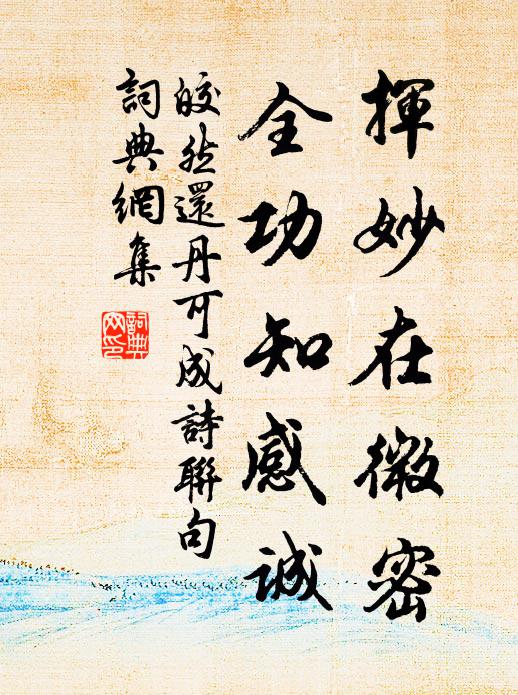 揮妙在微密
全功知感誠
皎然還丹可成詩聯句
詞典網集
詞典
网印